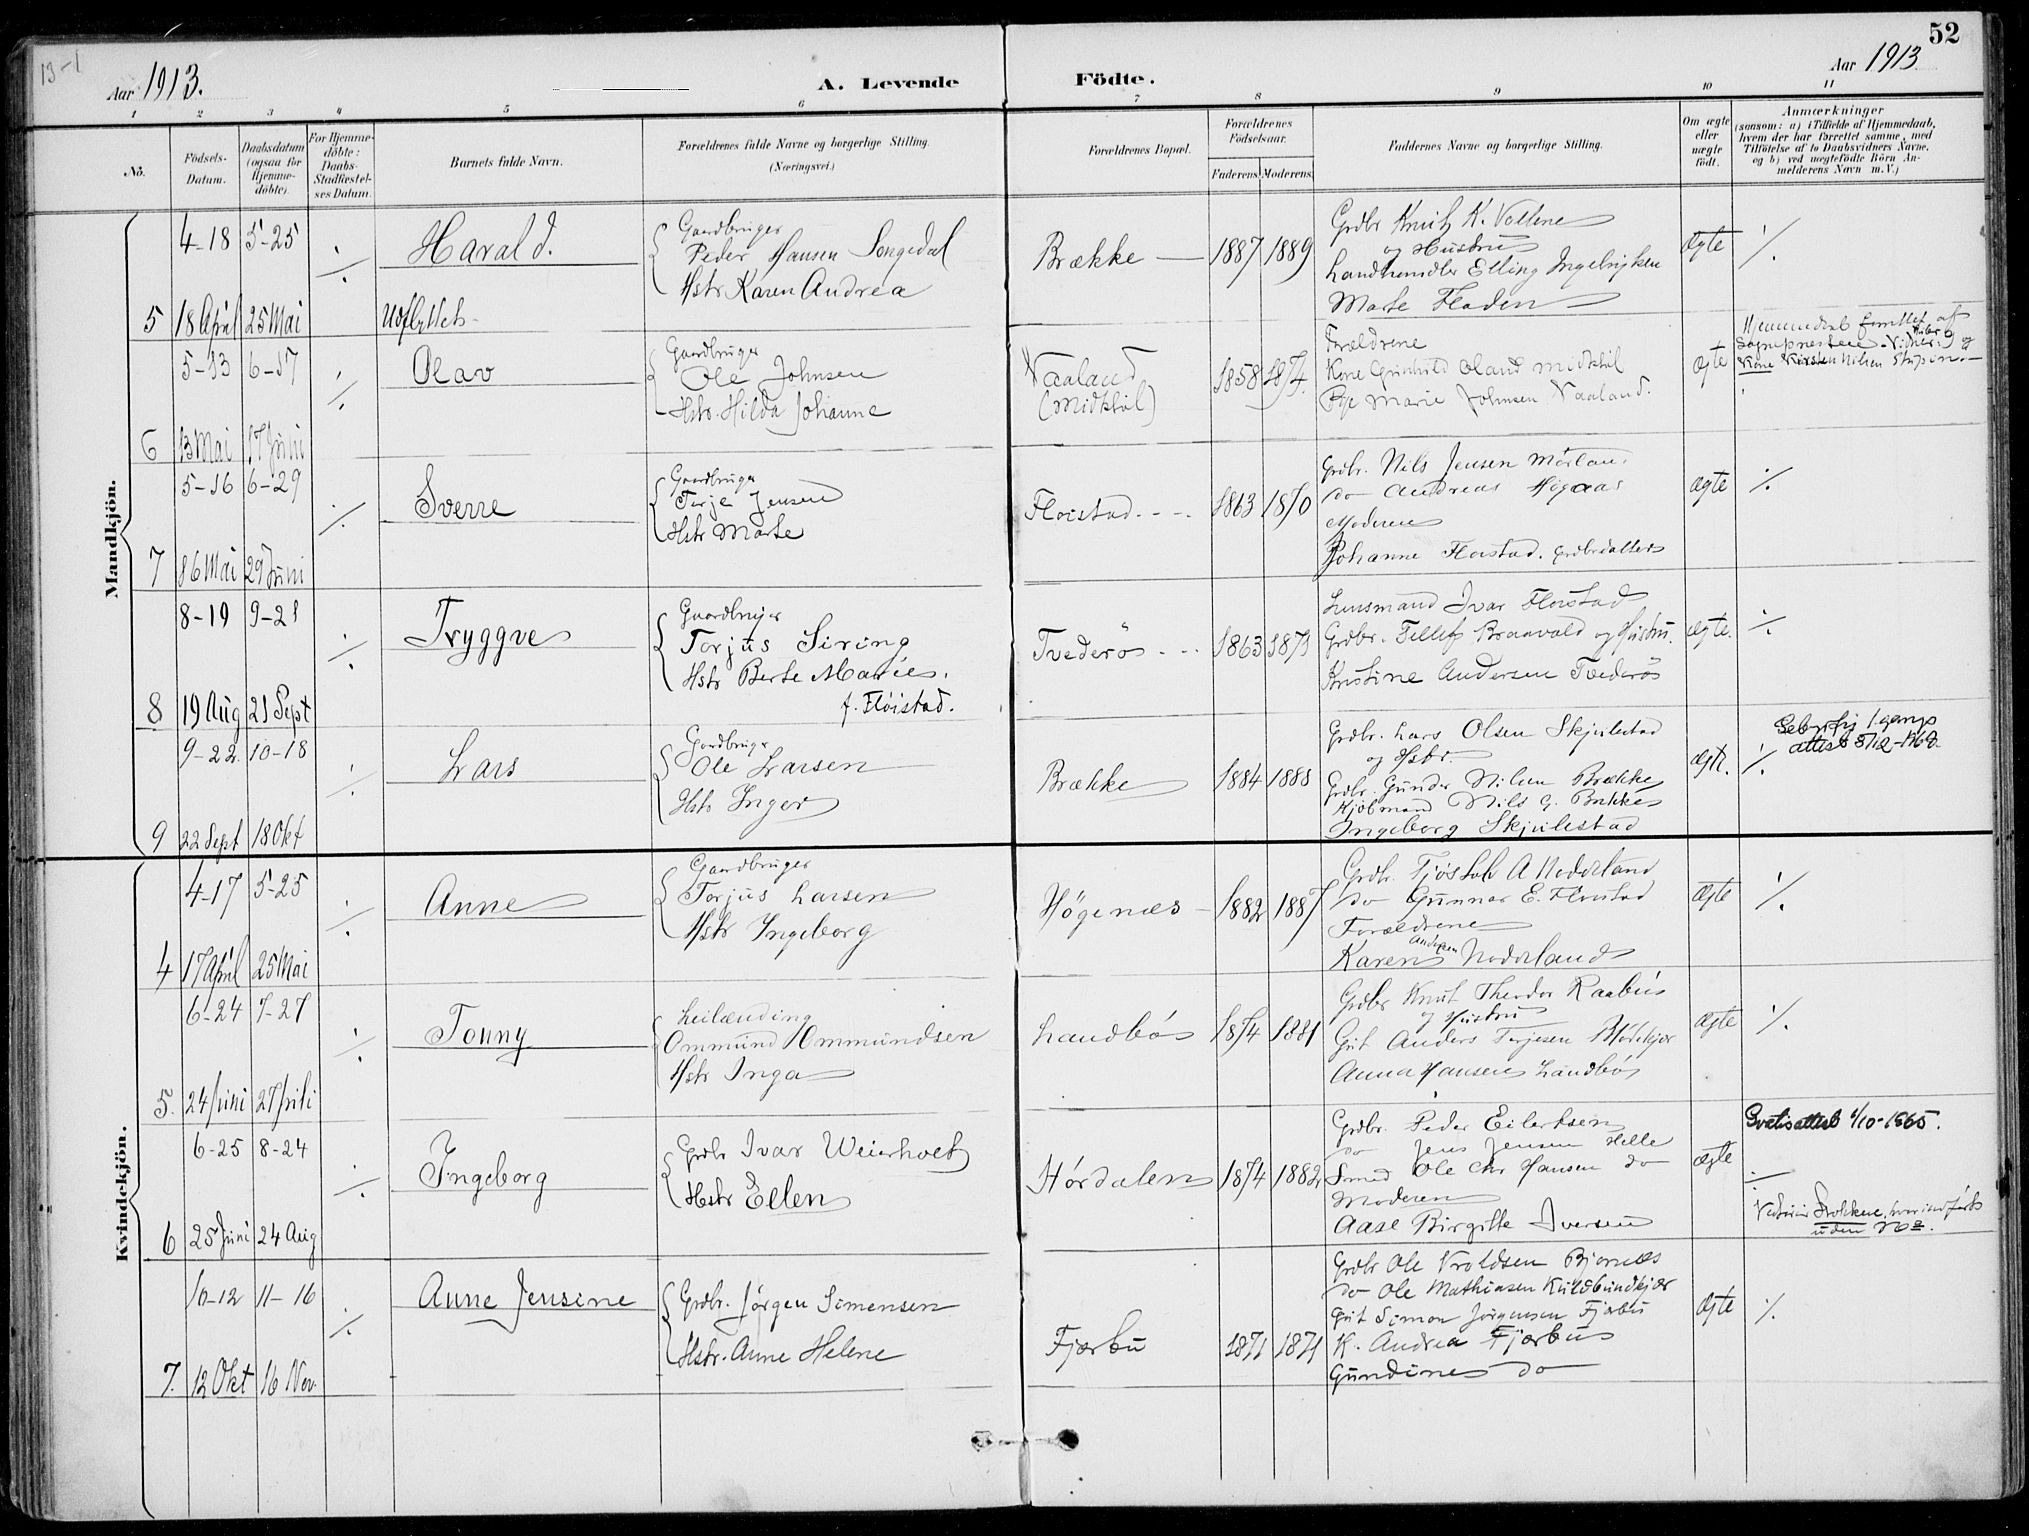 52
13-1
Aar 1913.
A. Levende Födte.
Aar 1913
1 2 3 4 5 6 7 8 9 10 11
No.
Födsels-Datum.
Daabsdatum (ogsaa for Hjemme-döbte).
For Hjemme-döbte: Daabs-Stadfæstel-ses Datum.
Barnets fulde Navn.
Forældrenes fulde Navne og borgerlige Stilling. (Næringsvei.)
Forældrenes Bopæl.
Forældrenes Födselsaar.
Faderens. Moderens.
Faddernes Navne og borgerlige Stilling.
Om ægte eller uægte födt.
Anmærkninger
(saasom: a) i Tilfælde af Hjemmedaab,
hvem der har forrettet samme, med
Tilföielse af to Daabsvidners Navne,
og b) ved uægtefödte Börn An-
melderens Navn m. V.)
Mandkjön.
4-18 5-25
5 18 April 25 Mai
÷
Harald.
Udflyttet
Gaardbruger
Peder Hansen Songedal
Hstr Karen Andrea
Brække
1887 1889
Grdbr Knut K. Vollene
og Hustru
Landhandler Elling Ingebrigtsen
Marte Fladen
Ægte
÷
5-13 6-17
6 13 Mai 17 Juni
÷
Olav
Gaardbruger
Ole Johnsen
Hstr. Hilda Johanne
Vaaland
(Midtbøl)
1858 1874.
Forældrene
Kone Gunhild Oland
Pige Marie Johnsen Vaaland.
Ægte
Hjemmedøbt forrettet af
Sognepresten
Kone Kirsten Nilsen
5-16 6-29
7 16 Mai 29 Juni
÷
Sverre
Gaardbruger
Terje Jensen
Hstr Marte
Floistad
1863 1870
Grdbr. Nils Jensen
do Andreas Høgaas
Moderen
Johanne Floistad. grdbrdatter
Ægte
÷
8-19 9-21
8 19 Aug 21 Sept
÷
Tryggve
Gaardbruger
Torjus Siring
Hstr Berte Marie.
f. Fløistad.
Tvederøs
1863 1873
Lensmand Ivar Floistad
Grdbr. Tellef Braavold og Hustru.
Kristine Andersen Tvederøs
Ægte.
÷
9-22 10-18
9 22 Sept 18 Okt
÷
Lars
Gardbruger
Ole Larsen
Hstr Inger
Brække
1884 1888
Grdbr. Lars Olsen Skjulestad
og Hstr.
Grdbr. Gunder Nilsen Brække
Kjøbmand Nils G. Brække
Ingeborg Skjulestad
Ægte.
÷
1 gangs
attest
Kvindekjön.
4-17 5-25
4 17 April 25 Mai
÷
Anne
Gaardbruger
Torjus Larsen
Hstr Ingeborg
Høgenæs
1882 1887
Grdbr. Tjøstolv A Noderland
do Gunnar E. Floistad
Forældrene
Karen Andersen Noderland
Ægte
÷
6-24 7-27
5. 24 Juni 27 Juli
÷
Tonny
Leilænding
Ommund Ommundsen
Hstr Inga
Landbøs
1874 1881
Grdbr Knut Theodor Raabus
og Hustru
Gut Anders Terjesen
Anna Hansen Landbøs
Ægte
÷
6-25 8-24
6 25 Juni 24 Aug
÷
Ingeborg
Grdbr Ivar Weierholt
Hstr Ellen
Hørdalen
1874 1882
Grdbr. Peder Eilertsen
do Jens Jensen Helle
Smed Ole Chr Hansen do
Moderen
Aase Birgitte Iversen
ægte
Gratisattest 1/10-1965.
uden No.
10-12 11-16
7. 12 Okt 16 Nov.
÷
Anne Jensine
Grdbr. Jørgen Simensen
Hstr. Anne Helene
Fjærbu
1871 1871
Grdbr Ole Vroldsen Bjornæs
do Ole Mathiasen
Gut Simon Jörgensen Fjærbu
K. Andrea Fjærbu
Gundine do
Ægte
÷